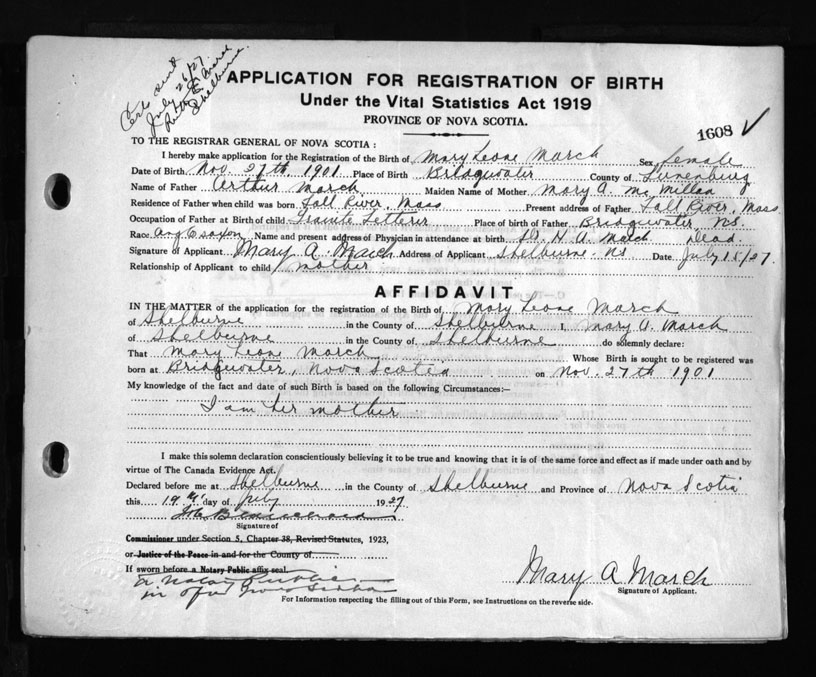 Certs sent
July 26/27
March
Shelburne.
APPLICATION FOR REGISTRATION OF BIRTH
Under the Vital Statistics Act 1919
PROVINCE OF NOVA SCOTIA.
1608 ✓
TO THE REGISTRAR GENERAL OF NOVA SCOTIA :
I hereby make application for the Registration of the Birth of Mary Leone March Sex female
Date of Birth Nov. 27th, 1901 Place of Birth Bridgewater County of Lunenburg
Name of Father Arthur March Maiden Name of Mother Mary A. McMillan
Residence of Father when child was born Fall River, Mass Present address of Father Fall River, Mass
Occupation of Father at Birth of child Granite Letterer Place of birth of Father Bridgewater, NS.
Race Ang Saxon Name and present address of Physician in attendance at birth Dr. H. A. March Dead
Signature of Applicant Mary A. March Address of Applicant Shelburne. NS Date July 15/27.
Relationship of Applicant to child mother
AFFIDAVIT
IN THE MATTER of the application for the registration of the Birth of Mary Leone March
of Shelburne in the County of Shelburne I, Mary A. March
of Shelburne in the County of Shelburne do solemnly declare:
That Mary Leone March Whose Birth is sought to be registered was
born at Bridgewater, Nova Scotia on Nov. 27th 1901
My knowledge of the fact and date of such Birth is based on the following Circumstances:—
I am her mother
I make this solemn declaration conscientiously believing it to be true and knowing that it is of the same force and effect as if made under oath and by
virtue of The Canada Evidence Act.
Declared before me at Shelburne in the County of Shelburne and Province of Nova Scotia
this 19th day of July 1927
Signature of
Commissioner under Section 5, Chapter 38, Revised Statutes, 1923,
or Justice of the Peace in and for the County of
If sworn before a Notary Public affix seal.
a Notary Public
in & for Nova Scotia
Mary A. March
Signature of Applicant.
For Information respecting the filling out of this Form, see Instructions on the reverse side.